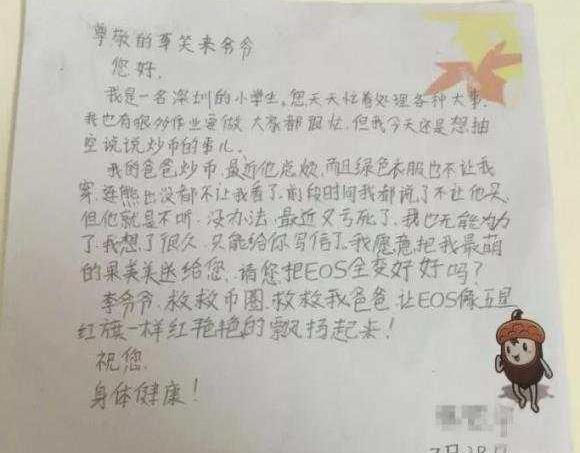 尊敬的李笑来爷爷
您好,
我是一名深圳的小学生,您天天忙着处理各种大事,
我也有很多作业要做 大家都很忙,但我今天还是想抽
空说说炒币的事儿。
我的爸爸炒币,最近他总烦,而且绿色衣服也不让我
穿,连熊出没都不让我看了,前段时间我都说了不让他买,
但他就是不听,没办法,最近又亏死了,我也无能为力
了,我想了很久,只能给你写信了,我愿意把我最萌
的果美美送给您,请您把EOS全变好好吗?
李爷爷,救救币圈,救救我爸爸,让EOS像五星
红旗一样红艳艳的飘扬起来!
祝您
身体健康!